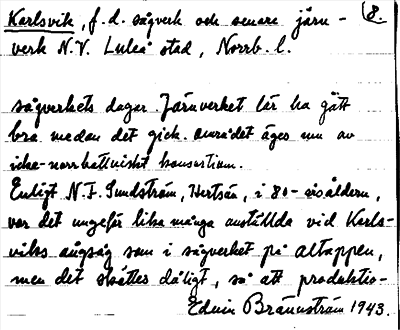 Karlsvik, f.d. sågverk och senare järn- 8.
verk N.V. Luleå stad, Norrb. l.
sågverkets dagar. Järnverket lär ha gått
bra medan det gick. området äges nu av
icke-norrbottniskt konsortium.
Enligt N.F. Sundström, Hertsön, i 80-årsåldern,
var det ungefär lika många anställda vid Karls-
viks ångsåg som i sågverket på Altappen,
men det sköttes dåligt, så att produktio-
Edvin Brännström 1943.